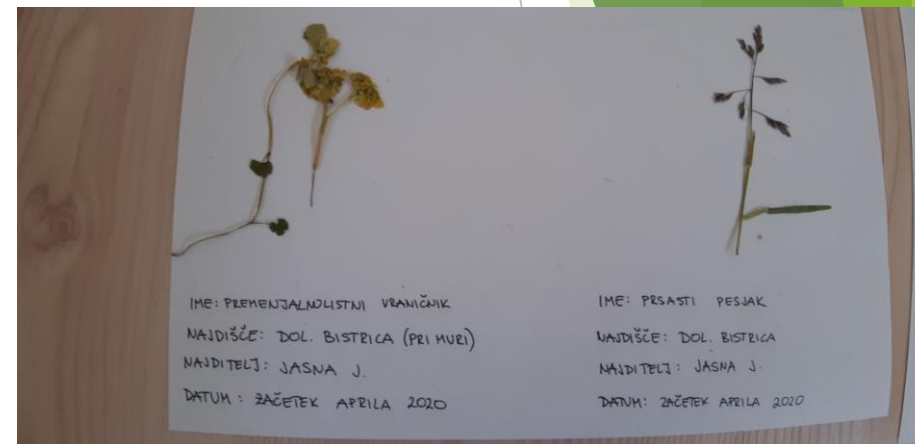 IME: PREMENJALNOLISTNI VRANIČNIK
NAJDIŠČE: DOL. BISTRICA (PRI MURI)
NAJDITELJ: JASNA J.
DATUM: ZAČETEK APRILA 2020
IME: PRSASTI PESJAK
NAJDIŠČE: DOL. BISTRICA
NAJDITELJ: JASNA J.
DATUM: ZAČETEK APRILA 2020